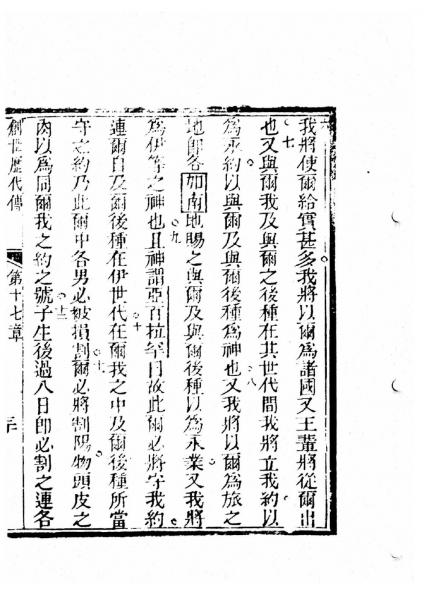 六我將使爾給實甚多我將以爾爲諸國又王輩將從爾出
七也又與爾我及與爾之後種在其世代間我將立我約以
爲永約以與爾及與爾後種爲神也八又我將以爾爲旅之
地即各加南地賜之與爾及與爾後種以爲永業又我將
爲伊等之神也九且神謂亞百拉罕曰故此爾必將守我約
連爾自及爾後種在伊世代十在爾我之中及爾後種所當
守之約乃此爾中各男必被損割十一爾必將割陽物頭皮之
肉以爲同爾我之約之號十二子生後過八日即必割之連各
創世歷代傳 第十七章